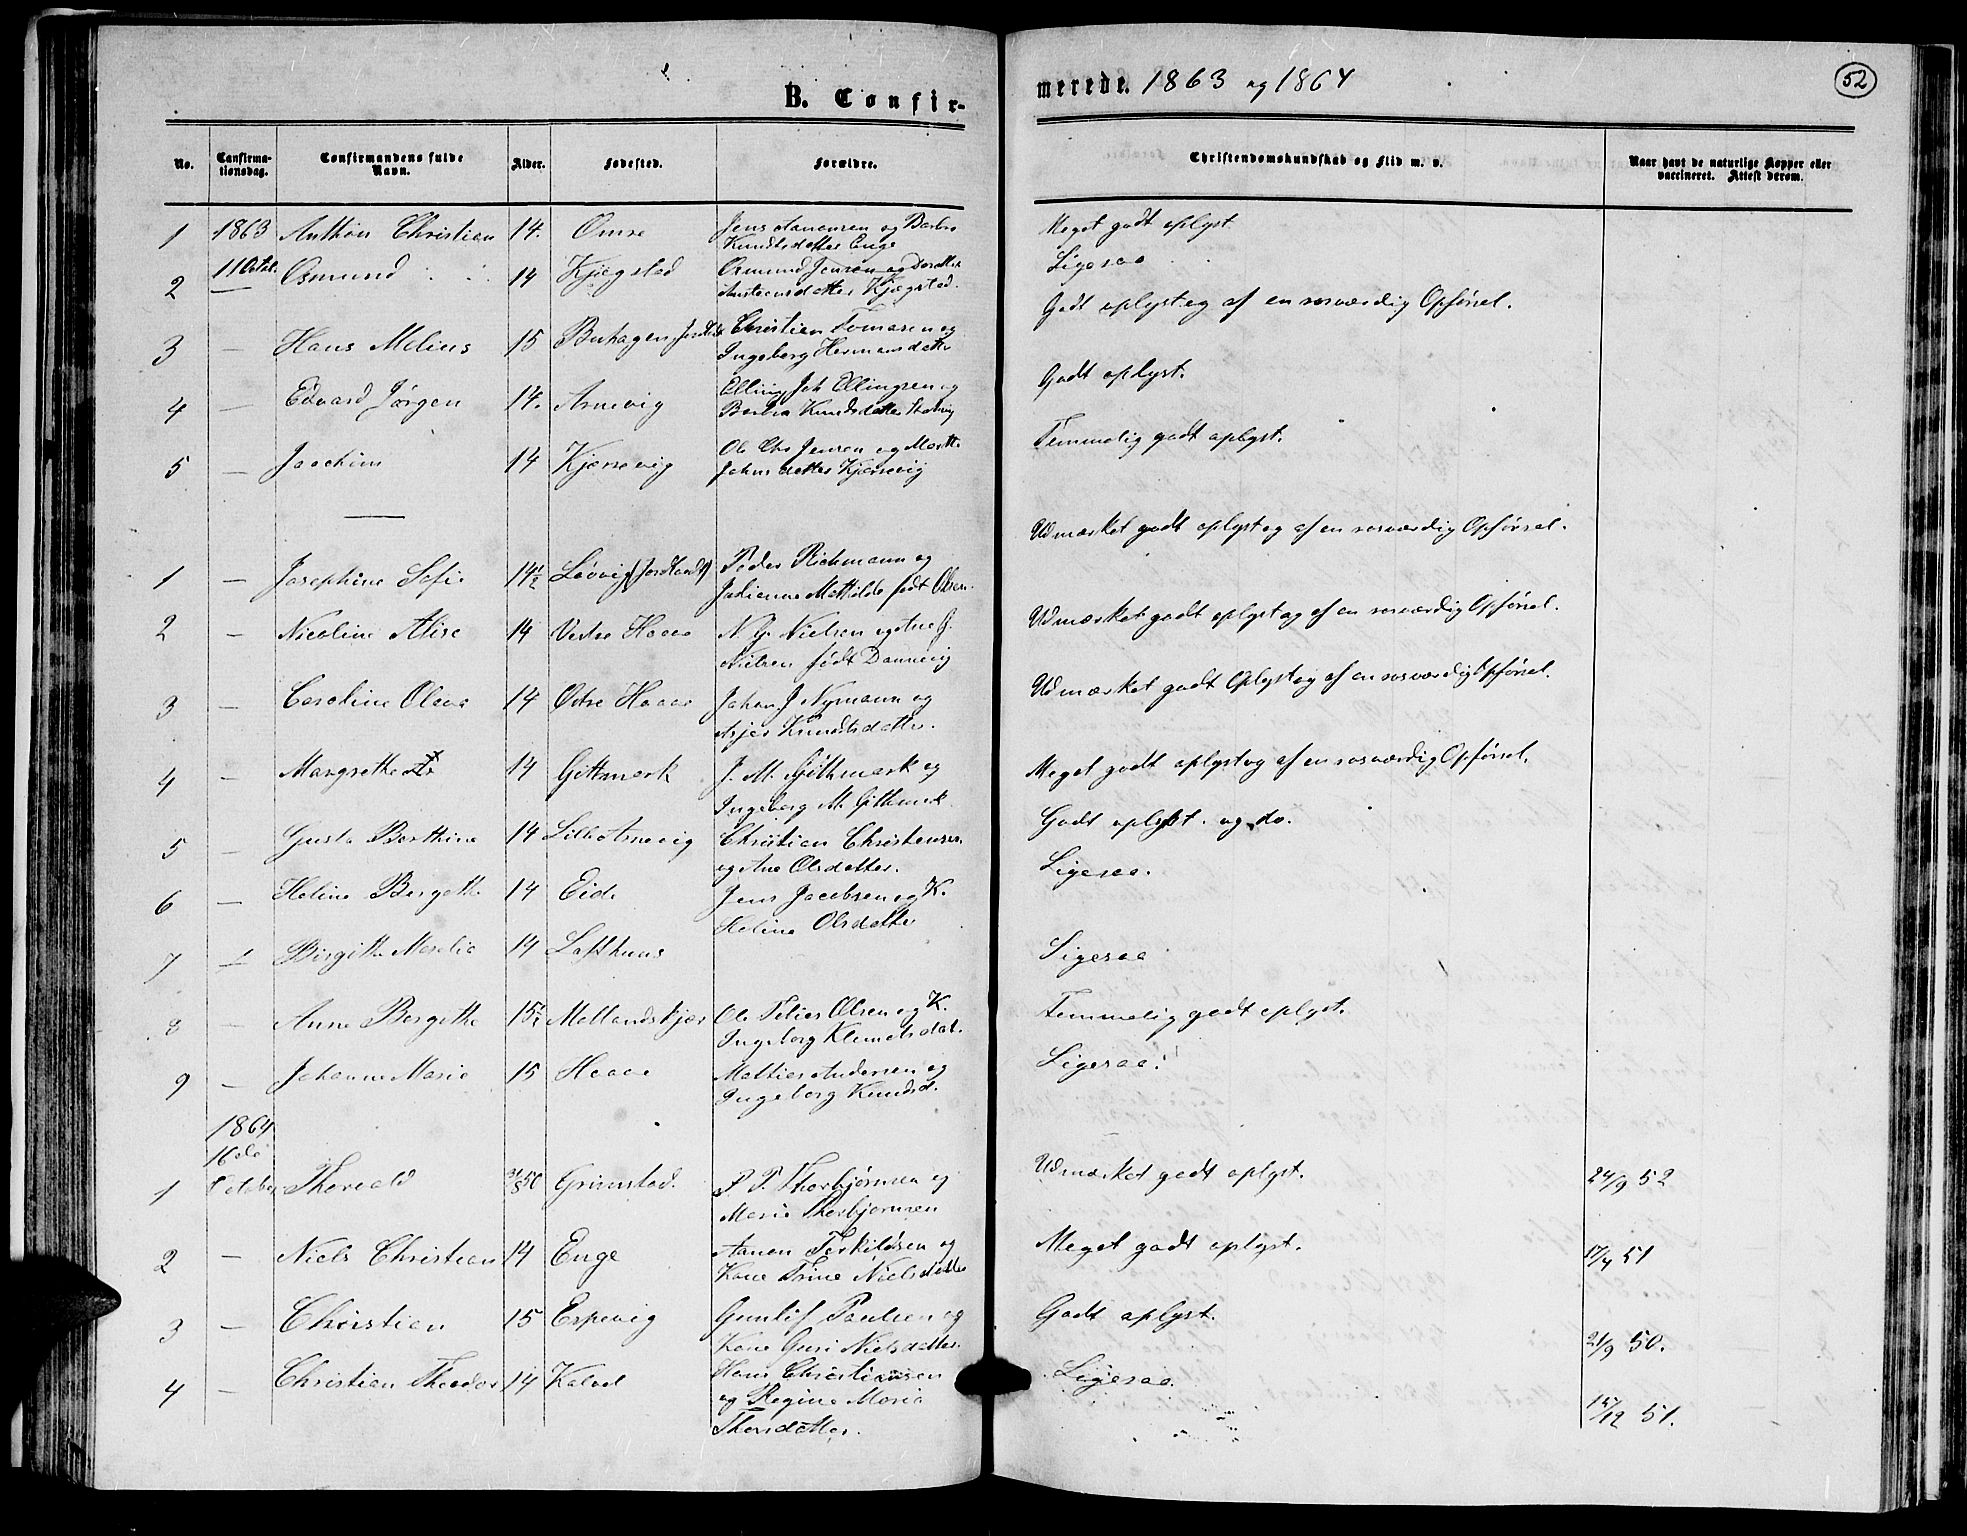 B. Confir-
merede. 1863 og 1864
52
No.
Confirma-
tionsdag.
Confirmandens fulde
Navn.
Alder.
Fødested.
Forældre.
Christendomskundskab og Flid m. v.
Naar havt de naturlige Kopper eller
vaccineret. Attest derom.
1 1863 Anthon Christian 14. Omre Jens Aanonsen og Barbro
Knudsdatter Enge
Meget godt oplyst
2 11 Octob. Osmund 14 Kjægstad Osmund Jensen og Dorthe
Austensdatter Kjægstad.
Ligesaa
3 — Hans Melius 15 Buhagen Christian Tomasen og
Ingeborg Hermansdatter
Godt oplyst og af en rosværdig Opførsel.
4 — Edvard Jørgen 14. Arnevig Elling Joh Ellingsen og
Barbra Knudsdatter
Godt oplyst.
5 — Joachim 14 Kjærevig Ole Chr Jensen og Marthe
Johnsdatter Kjærevig
Temmelig godt oplyst.
1 — Josephine Sofie 14½ Løvvig Peder Richmann og
Julienne Mathilde født Olsen
Udmærket godt oplyst og af en rosværdig Opførsel.
2 — Nicoline Alise 14 Vestre Haaø N. G. Nielsen og Ane G.
Nielsen født Dannevig
Udmærket godt oplyst og af en rosværdig Opførsel.
3 — Caroline Olava 14 Østre Haaø Johan J Nymann og
Asjer Knudsdatter.
Udmærket godt Oplyst og af en rosværdig Opførsel.
4 — Margrethe 14 Gittmark J. M. Githmark og
Ingeborg M. Githmark
Meget godt oplyst og af en rosværdig Opførsel.
5 — Gusta Berthine 14 Lille Arnevig Christian Christensen
og Ane Olsdatter.
Godt oplyst. og do.
6 — Heline Bergethe 14 Eide Jens Jacobsen og K.
Heline Olsdatter
Ligesaa.
7 — Birgithe Marelia 14 Lofthuus
Ligesaa
8 — Anne Bergethe 15½ Mollandskjær Ole Tellef Olsen og K.
Ingeborg Klemetsdat.
Temmelig godt oplyst.
9 — Johanne Marie 15 Haaø Mathias Andersen og
Ingeborg Knudsd.
Ligesaa.
1864
16de
1 October Thorvald 31/8 50 Grimstad. P P. Thorbjørnsen og
Maria Thorbjørnsen
Udmærket godt oplyst. 24/9 52
2 — Niels Christian 14 Enge Aanon Terkildsen og
Kone Trine Nielsdatter
Meget godt oplyst. 17/7 51
3 — Christian 15 Espevig Gunlof Paulsen og
Kone Guri Nielsdatter.
Godt oplyst. 21/9 50.
4 — Christian Theodor 14 Kalvel Hans Christiansen
og Regine Maria
Thorsdatter.
Ligesaa. 15/12 51.